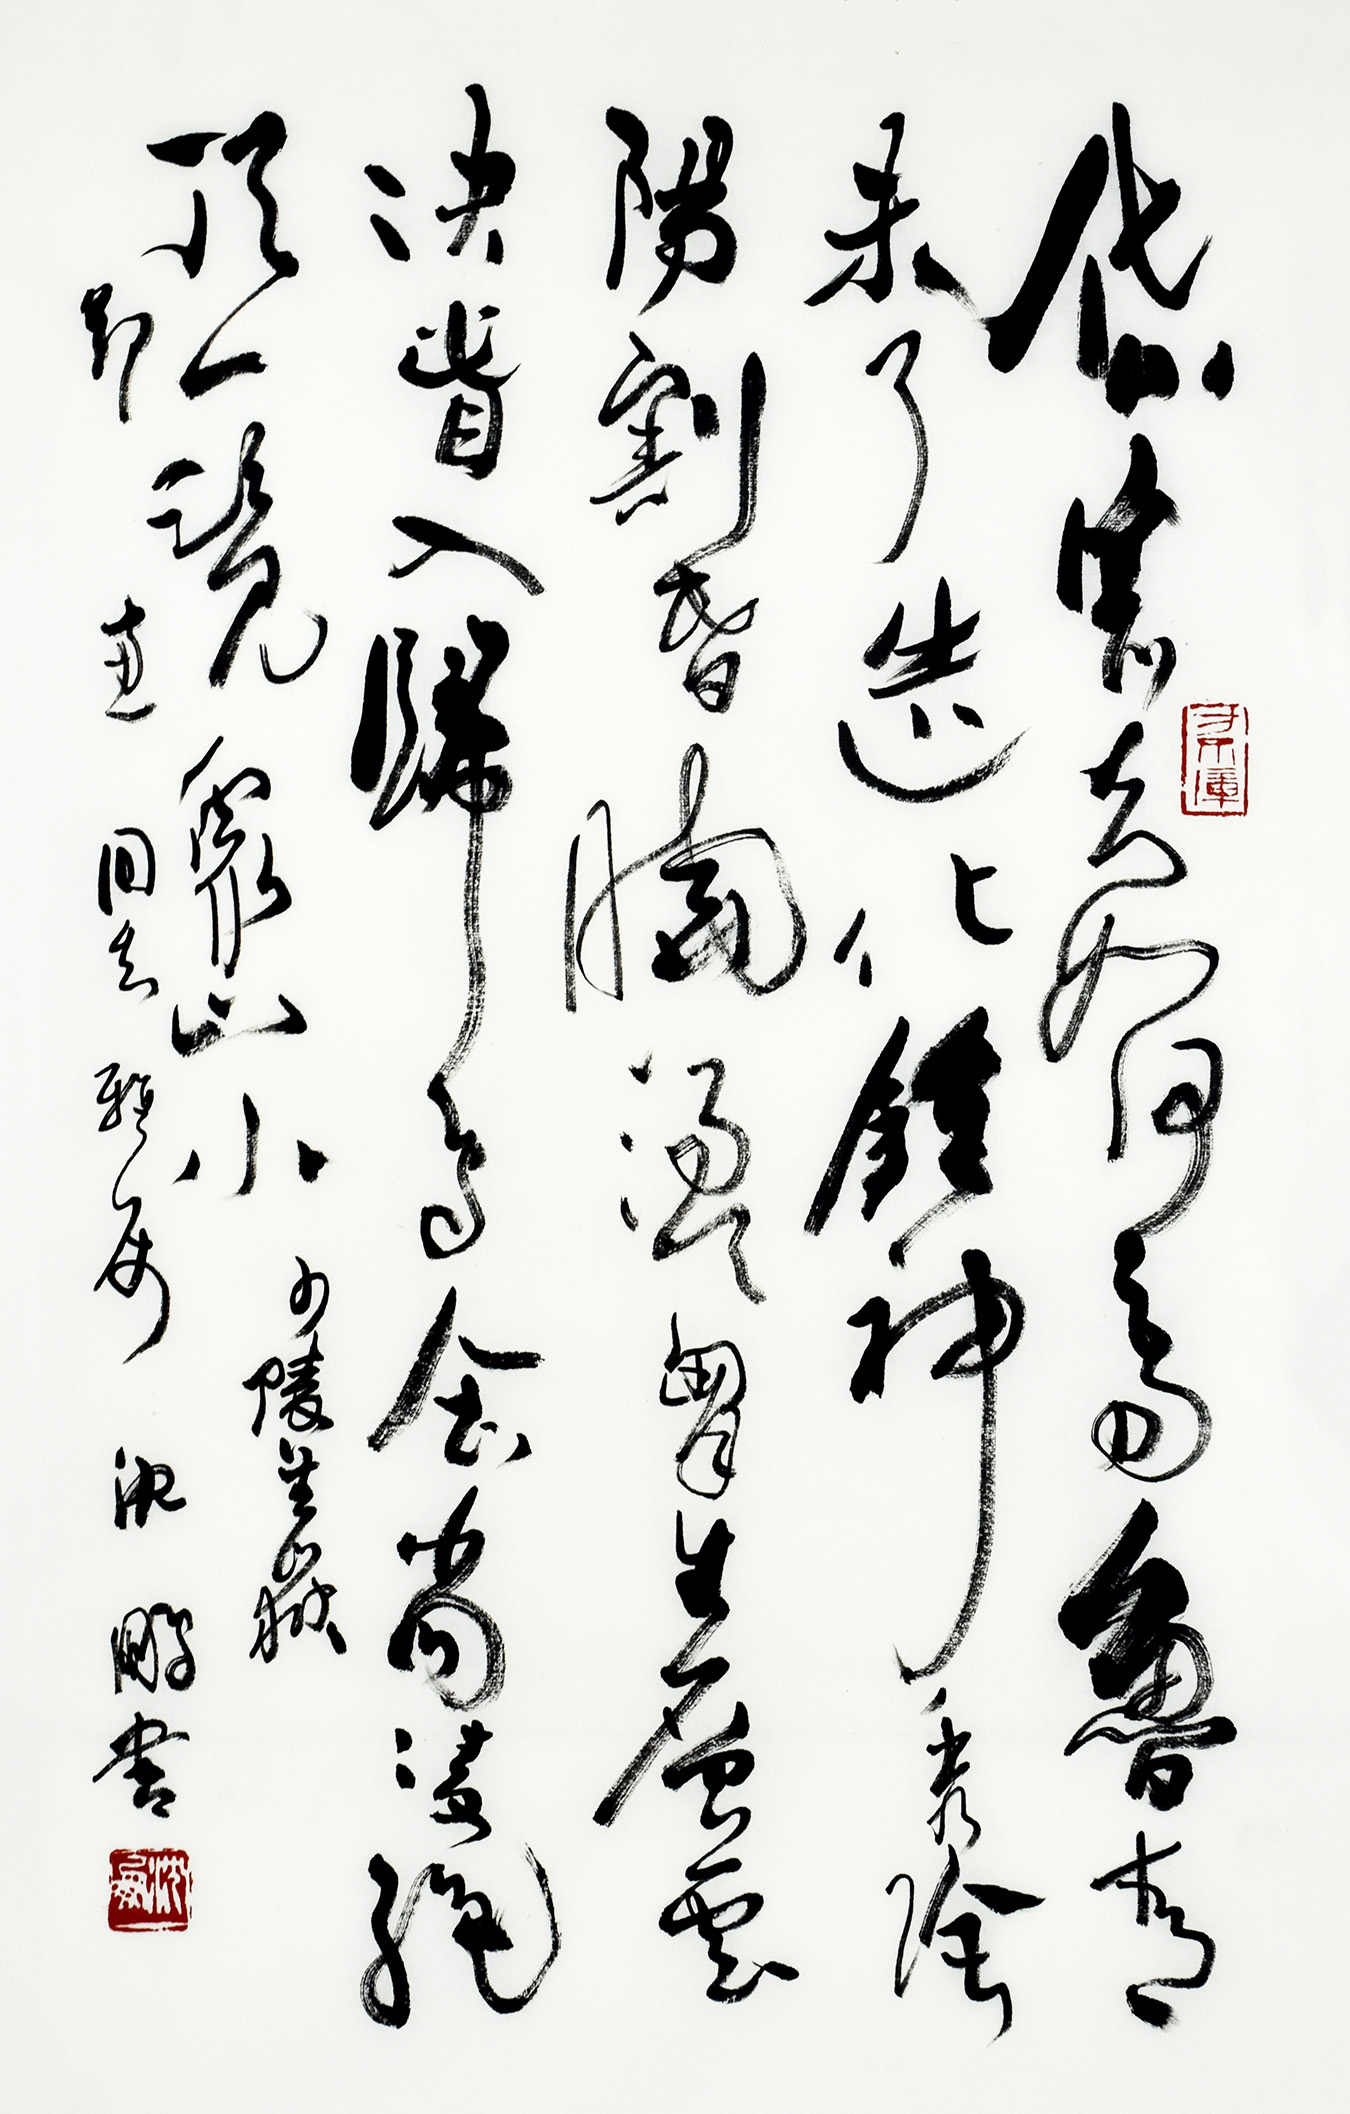 岱宗夫如何齊魯青
未了造化鍾神秀陰
陽割昏曉盪胸生層雲
决眥入歸鳥會當凌絕
頂一覽衆山小
少陵望嶽
同志雅屬 沈鵬書